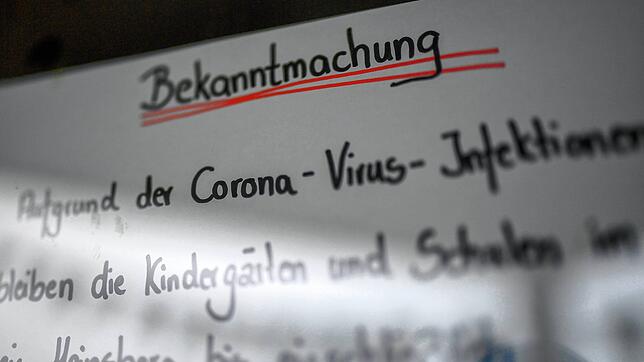 Bekanntmachung
Aufgrund der Corona-Virus-Infektionen
bleiben die Kindergärten und Schulen im
Heinsberg bis